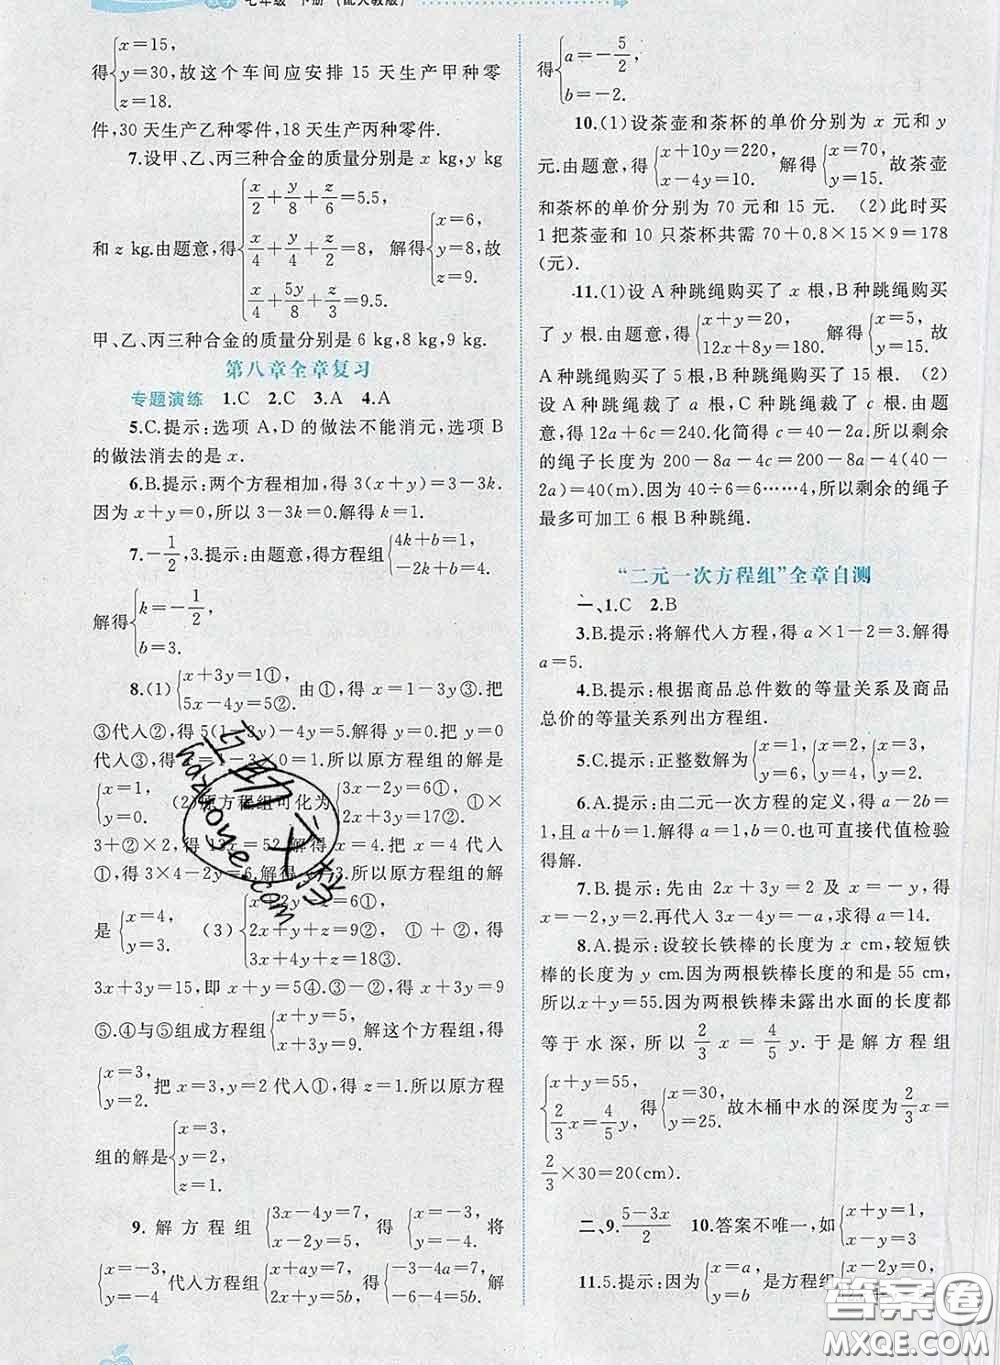 七年级 下册 (配人教版)
得{x=15, y=30, z=18. 故这个车间应安排 15 天生产甲种零
件,30 天生产乙种零件,18 天生产丙种零件.
7.设甲、乙、丙三种合金的质量分别是 x kg,y kg
和 z kg.由题意,得{x/2+y/8+z/6=5.5, x/4+y/4+z/2=8, x/4+5y/8+z/3=9.5. 解得{x=6, y=8, z=9. 故
甲、乙、丙三种合金的质量分别是 6 kg,8 kg,9 kg.
第八章全章复习
专题演练 1.C 2.C 3.A 4.A
5.C.提示:选项 A,D 的做法不能消元,选项 B
的做法消去的是 x.
6.B.提示:两个方程相加,得 3(x+y)=3-3k.
因为 x+y=0,所以 3-3k=0.解得 k=1.
7.-1/2,3.提示:由题意,得方程组{4k+b=1, -2k+b=4.
解得{k=-1/2, b=3.
8.(1){x+3y=1①, 5x-4y=5②. 由①,得 x=1-3y③.把
③代人②,得 5(1-3y)-4y=5.解得 y=0.把 y=0
代人③,得 x=1-3×0=1.所以原方程组的解是
{x=1, y=0. (2)原方程组可化为{3x-2y=6①, 2x+3y=17②. ①×
3+②×2,得 13x=52.解得 x=4.把 x=4 代人
①,得 3×4-2y=6.解得 y=3.所以原方程组的解
是{x=4, y=3. (3){x+2y+z=8①, 2x+y+z=9②, 3x+4y+z=18③. ①+②,得
3x+3y=15,即 x+y=5④.③-①,得 x+3y=9
⑤.④与⑤组成方程组{x+y=5, x+3y=9. 解这个方程组,得
{x=3, y=2. 把 x=3,y=2 代人①,得 z=1.所以原方程
组的解是{x=3, y=2, z=1.
9.解方程组{3x-4y=7, 得
{x=-3, y=-4 代人方程组 得{-3-4a=7, -6-4=5b. 解
得{a=-5/2, b=-2.
10.(1)设茶壶和茶杯的单价分别为 x 元和 y
元.由题意,得{x+10y=220, x-4y=10. 解得{x=70, y=15. 故茶壶
和茶杯的单价分别为 70 元和 15 元. (2)此时买
1 把茶壶和 10 只茶杯共需 70+0.8×15×9=178
(元).
11.(1)设 A 种跳绳购买了 x 根,B 种跳绳购买
了 y 根.由题意,得{x+y=20, 12x+8y=180. 解得{x=5, y=15. 故
A 种跳绳购买了 5 根,B 种跳绳购买了 15 根. (2)
设 A 种跳绳裁了 a 根,C 种跳绳裁了 c 根.由题
意,得 12a+6c=240.化简得 c=40-2a.所以剩余
的绳子长度为 200-8a-4c=200-8a-4(40-
2a)=40(m).因为 40÷6=6……4,所以剩余的绳子
最多可加工 6 根 B 种跳绳.
“二元一次方程组”全章自测
一、1.C 2.B
3.B.提示:将解代人方程,得 a×1-2=3.解得
a=5.
4.B.提示:根据商品总件数的等量关系及商品
总价的等量关系列出方程组.
5.C.提示:正整数解为{x=1, y=6, {x=2, y=4, {x=3, y=2.
6.A.提示:由二元一次方程的定义,得 a-2b=
1,且 a+b=1.解得 a=1,b=0.也可直接代值检验
得解.
7.B.提示:先由 2x+3y=2 及 x=-y,得
x=-2,y=2.再代人 3x-4y=-a,求得 a=14.
8.A.提示:设较长铁棒的长度为 x cm,较短铁
棒的长度为 y cm.因为两根铁棒长度的和是 55 cm,
所以 x+y=55.因为两根铁棒未露出水面的长度都
等于水深,所以 2/3 x=4/5 y.于是解方程组
{x+y=55, 2/3 x=4/5 y. 得{x=30, y=25. 故木桶中水的深度为 2/3 x=
2/3×30=20(cm).
二、9.(5-3x)/2 10.答案不唯一,如{x+y=1, x-y=3
11.5.提示:因为{x=a, y=b 是方程组
答案圈
MXQE.COM